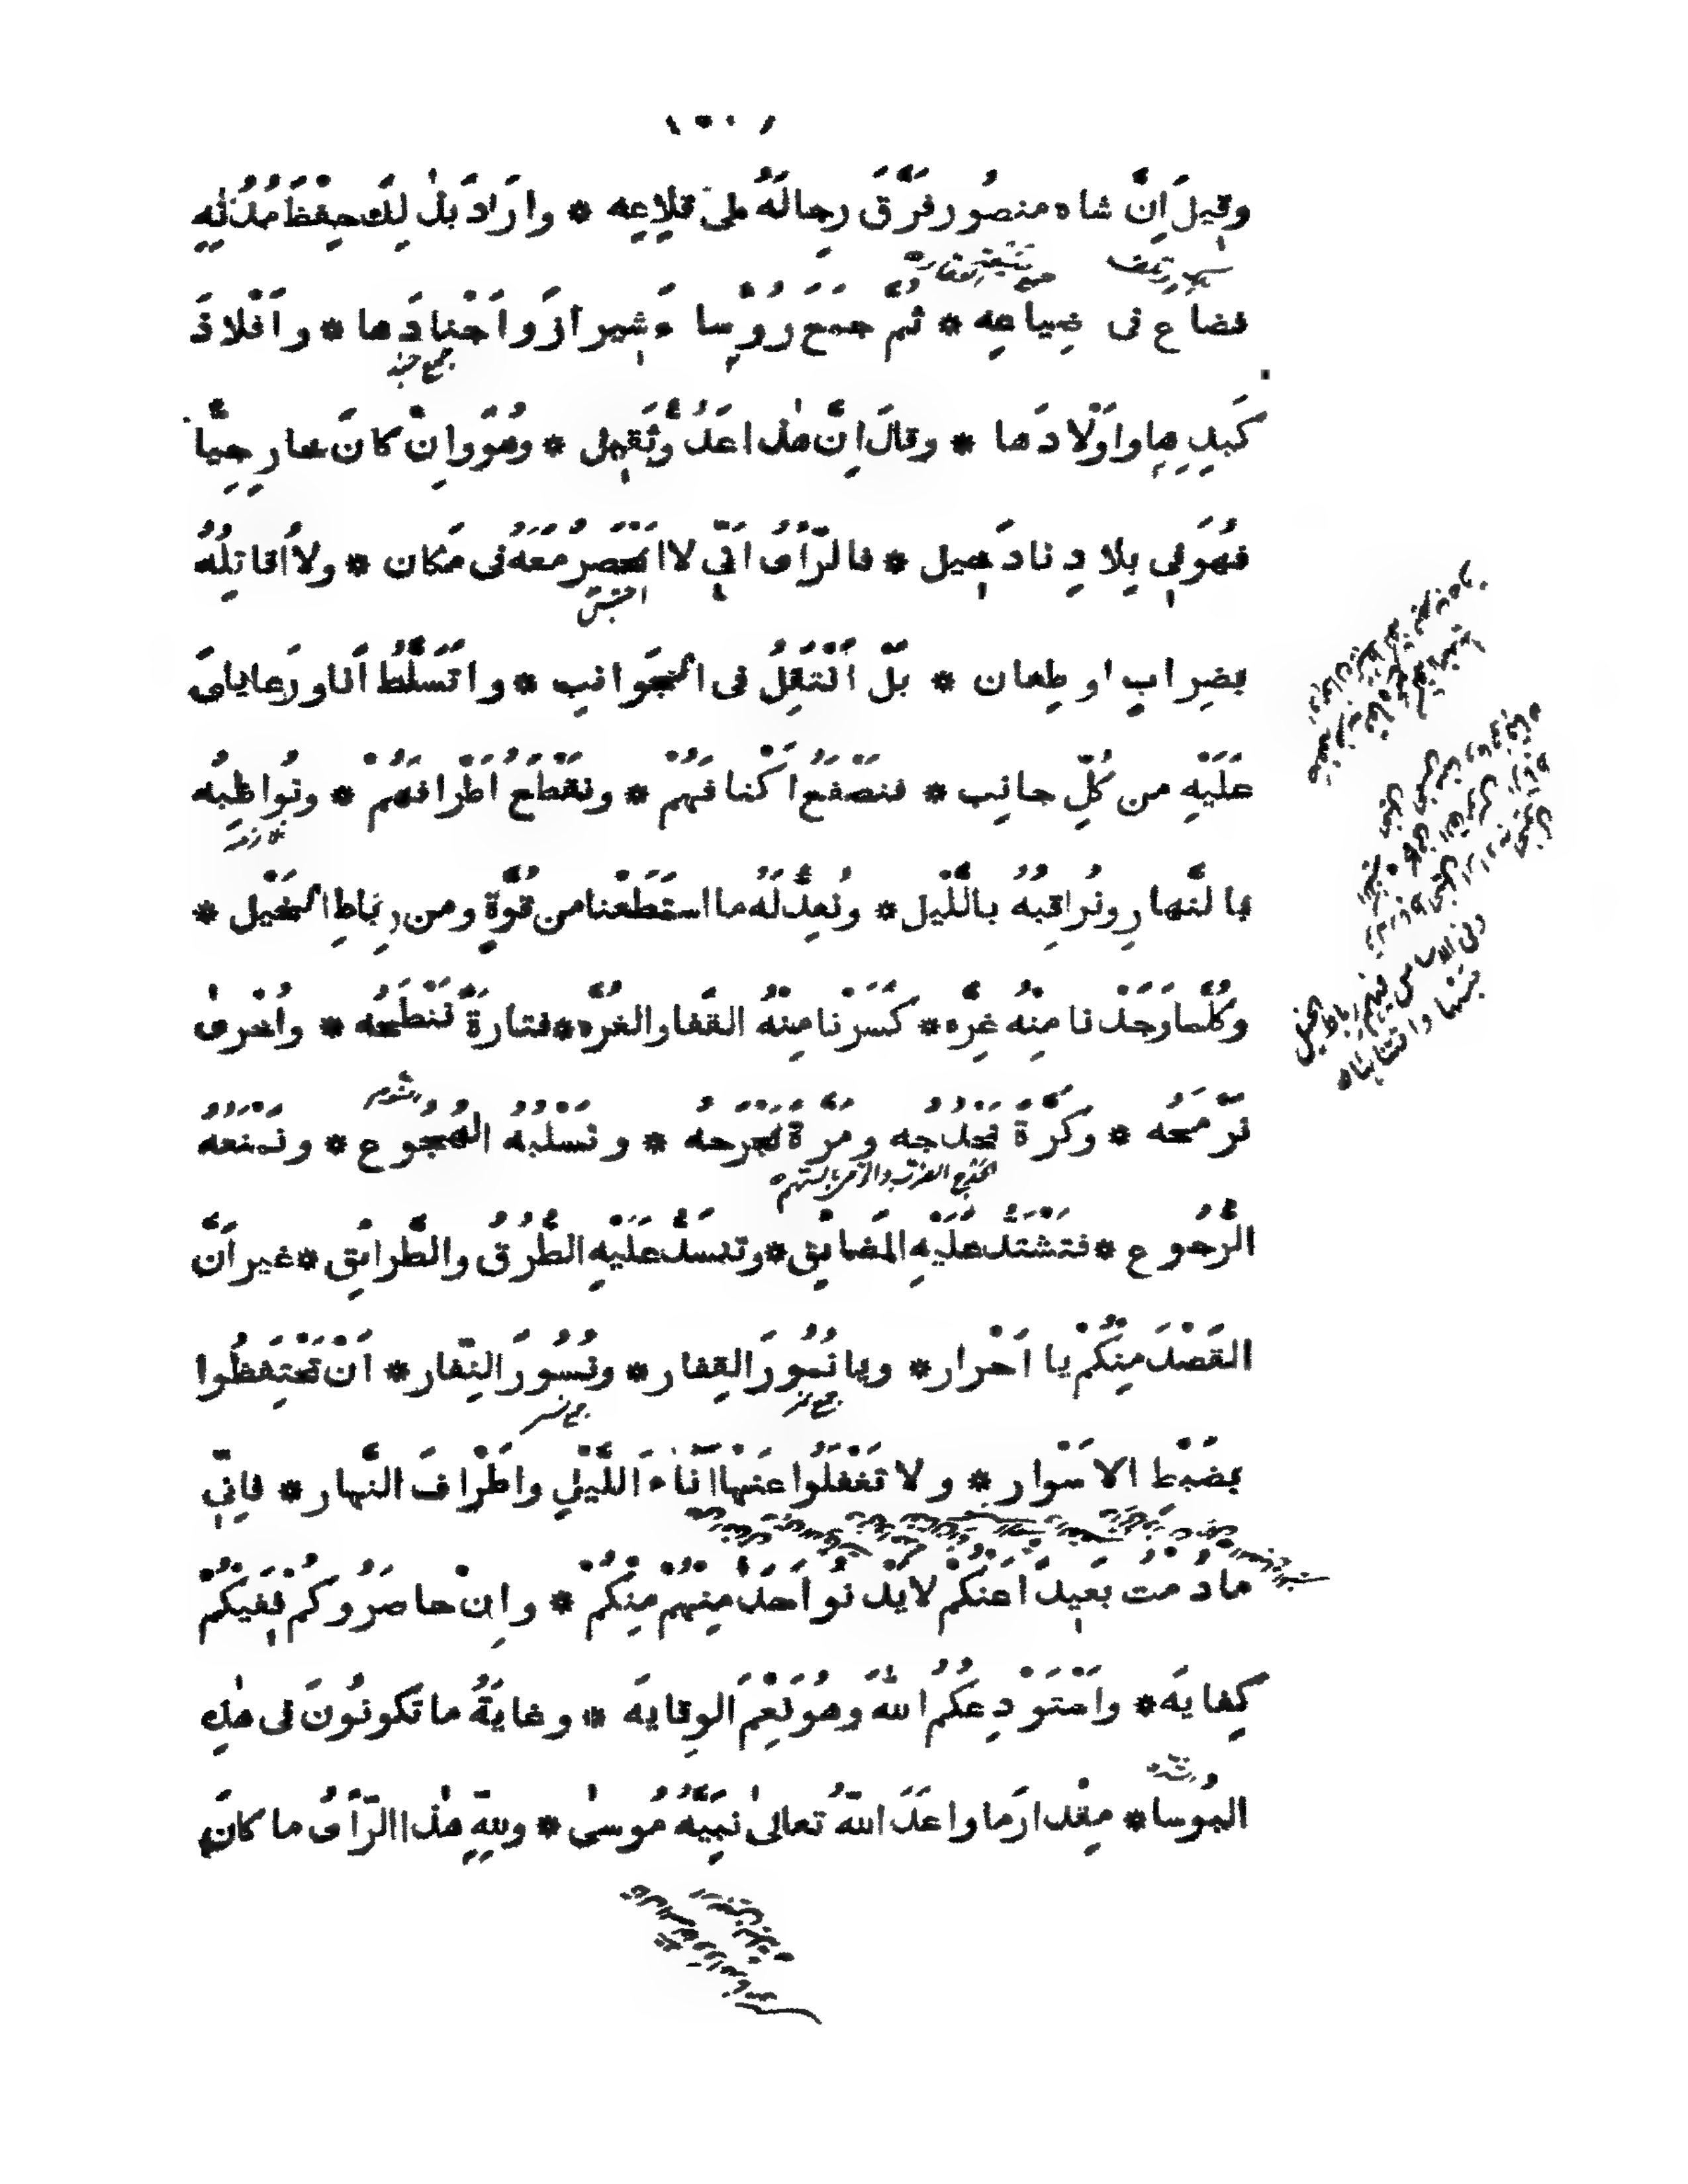 وقيل اِنَّ شاه منصُور فرَّقَ رِجالَهُ على قلاعِه * وارَادَ بذٰلِكَ حِفْظَ مُدُنِه
فضاع فى ضِياعِه * ثُمَّ جمعَ رُوُسَاءَ شِيرازَ واَجْنادَها * واَفْلاذَ
جمع جند
كَبِدِها واَوْلادَها * وقالَ اِنَّ هٰذا عَدُوٌّ ثَقِيل * وهُوَ واِنْ كانَ خارِجِيًّا
فهُوَ فِى بِلادِنا دَخِيل * فالرَّأىُ اَنِّى لا اَنْحَصِرُ مَعَهُ فى مَكان * ولا اُقاتِلُهُ
بضِرابٍ او طِعان * بَلْ اَنْتَقِلُ فى الجَوانِب * واَتَسَلَّطُ اَنا ورَعاياىَ
عَلَيْهِ من كُلِّ جانِب * فنَصْفَعُ اَكْنافَهُمْ * ونَقْطَعُ اَطْرافَهُمْ * ونُواظِبُه
بالنَّهارِ ونُراقِبُهُ باللَّيْل * ونُعِدُّ لَهُ ما استَطَعْنا من قُوَّةٍ ومن رِباطِ الخَيْل *
وكُلَّما وَجَدْنا مِنْهُ غِرَّه * كَسَرْنا مِنْهُ القَفا والغُرَّه * فتارَةً نَنْطَحُه * واُخْرىٰ
نَرْمَحُه * وكَرَّةً نَخْدِجُه ومَرَّةً نَجْرَحُه * ونَسْلُبُهُ الهُجُوع * ونَمْنَعُهُ
الرُّجُوع * فتَشْتَدُّ عَلَيْهِ المَضايِق * وتَنسَدُّ عليْهِ الطُّرُقُ والطَّرائِق * غير اَنَّ
القَصْدَ مِنكُمْ يا اَحْرار * ويا نُمُورَ القِفار * ونُسُورَ النِّفار * اَنْ تَحْتَفِظُوا
جمع نمر
جمع نسر
بضَبْطِ الاَسْوار * ولا تَغْفَلُوا عنها آناءَ اللَّيْلِ واَطْرافَ النَّهار * فاِنِّى
ما دُمْتُ بَعِيداً عَنكُمْ لا يَدْنُو اَحَدٌ مِنْهُمْ مِنكُمْ * واِنْ حاصَرُوكُمْ ففِيكُمْ
كِفايَه * واَسْتَوْدِعُكُم اللهَ وهُوَ نِعْمَ الوِقايَه * وغايَةُ ما تكونُونَ فى هٰذِهِ
البُوسا * مِقْدارَ ما واعَدَ اللهُ تعالىٰ نَبِيَّهُ مُوسىٰ * وللهِ هٰذا الرَّأىُ ما كانَ